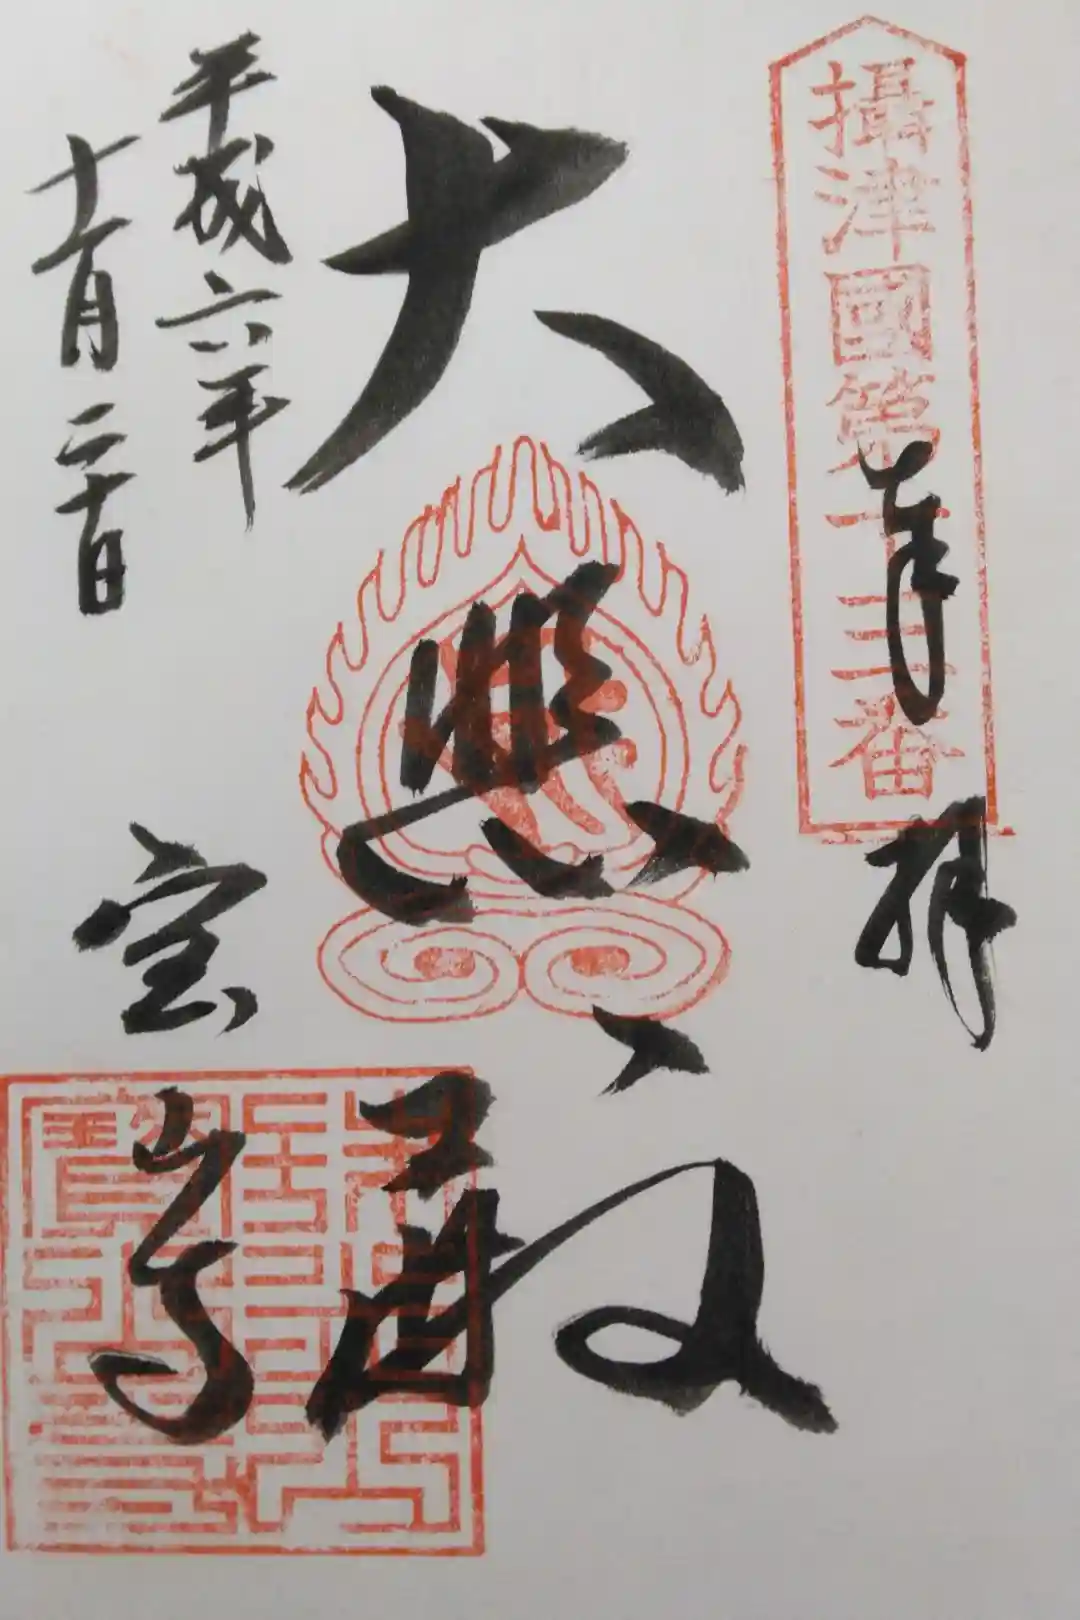 攝津國第十三番
奉拝
大悲殿
平成六年
十一月二十日
宝山寺